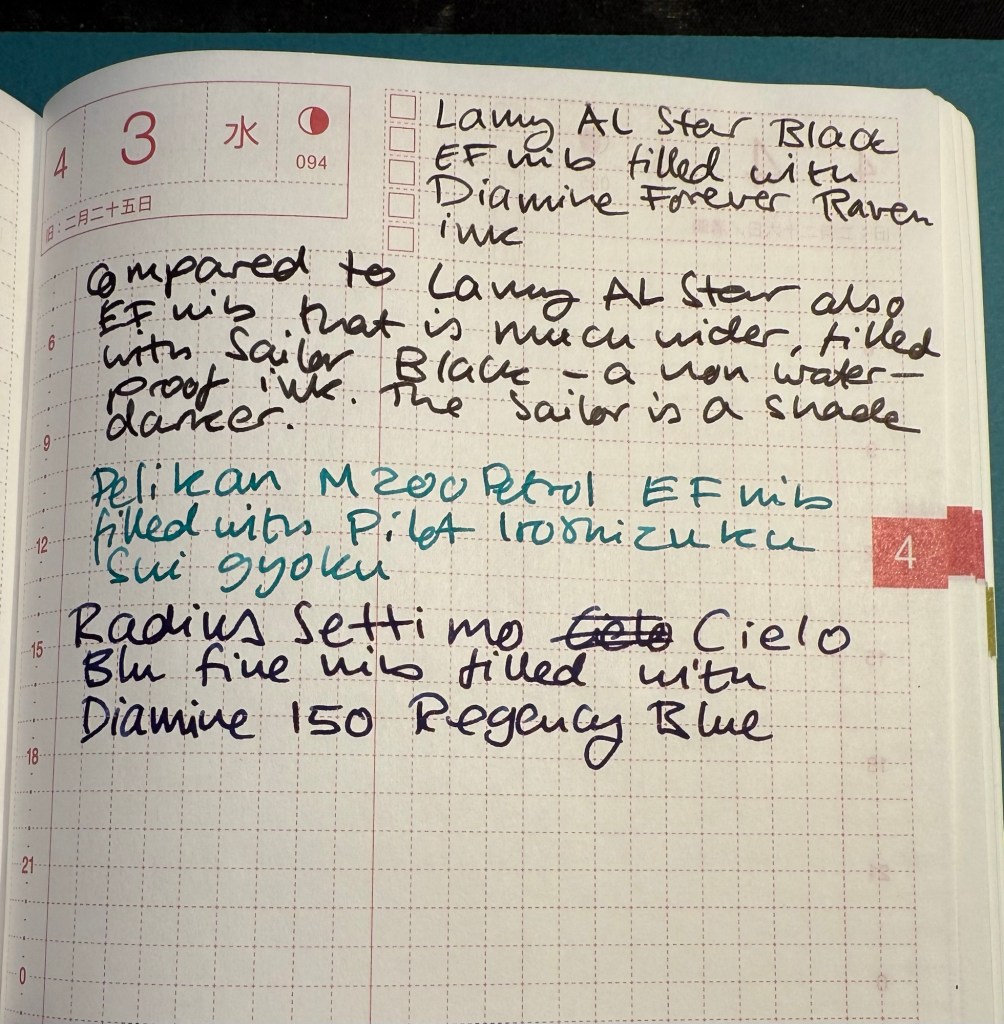 4 3 水 094
旧:二月二十五日
Lamy AL Star Black
EF nib filled with
Diamine Forever Raven
ink
Compared to Lamy AL Star also
EF nib that is much wider, filled
with Sailor Black - a non water-
proof ink. The Sailor is a shade
darker.
Pelikan M200 Petrol EF nib
filled with Pilot Iroshizuku
Sui gyoku
Radius Settimo Cielo
Blu fine nib filled with
Diamine 150 Regency Blue
6
9
12
15
18
21
0
4